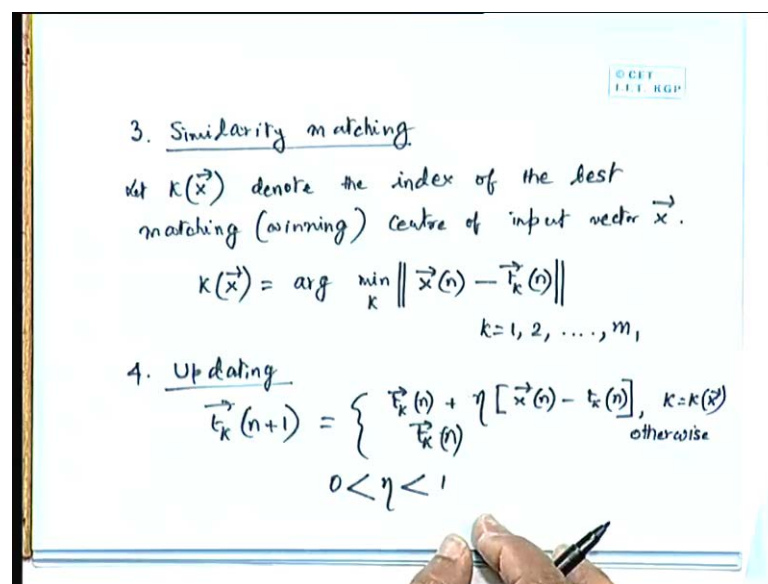 © CET
I.I.T. KGP
3. Similarity matching.
Let K(x⃗) denote the index of the best
matching (winning) centre of input vector x⃗.
K(x⃗) = arg min_K ‖ x⃗(n) − t⃗_k(n) ‖
k = 1, 2, ...., m₁
4. Updating
t⃗_k(n+1) = { t⃗_k(n) + η [x⃗(n) − t_k(n)], K = K(x⃗)
t⃗_k(n) otherwise
0 < η < 1